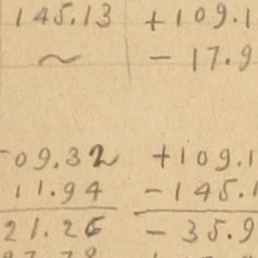 145.13 +109.1
~ - 17.9
09.32 +109.1
11.94 -145.1
21.26 - 35.9